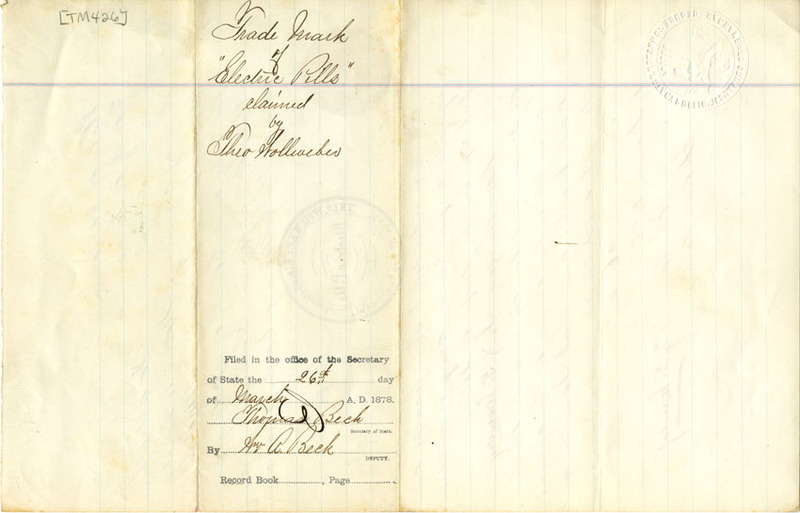 [TM426]
Trade Mark
of
"Electric Pills"
claimed
by
Theo Wollweber
Filed in the office of the Secretary
of State the 26th day
of March A. D. 1878.
Thomas Beck
Secretary of State.
By Wm A. Beck
DEPUTY.
Record Book, Page